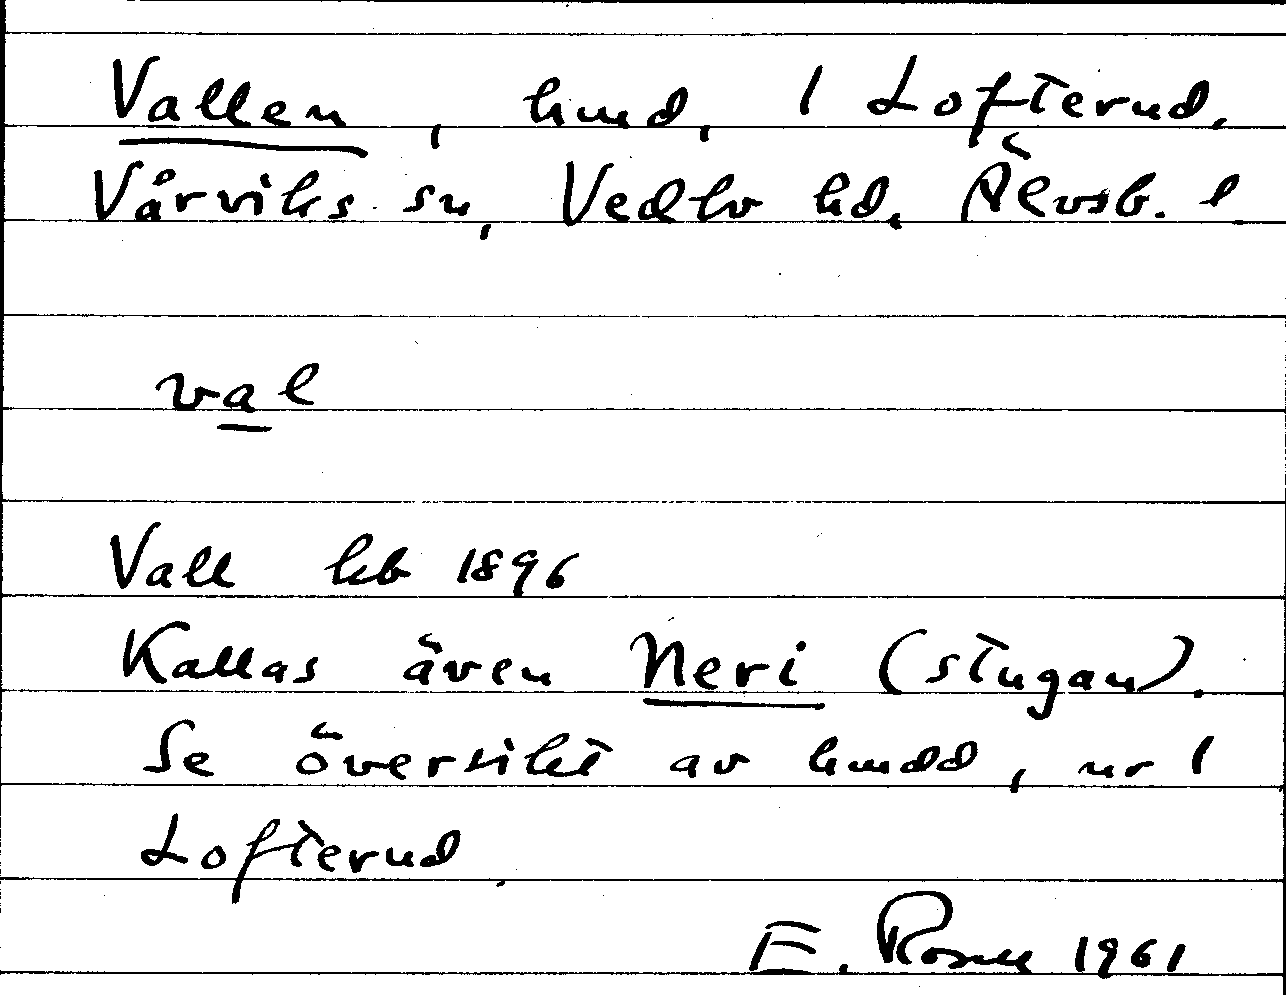 Vallen, hmd, 1 Lofterud,
Vårviks sn, Vedbo hd, Älvsb. l.
val
Vall kb 1896
Kallas även Neri (stugan).
Se översikt av hmdd, nr 1
Lofterud.
E. 1961